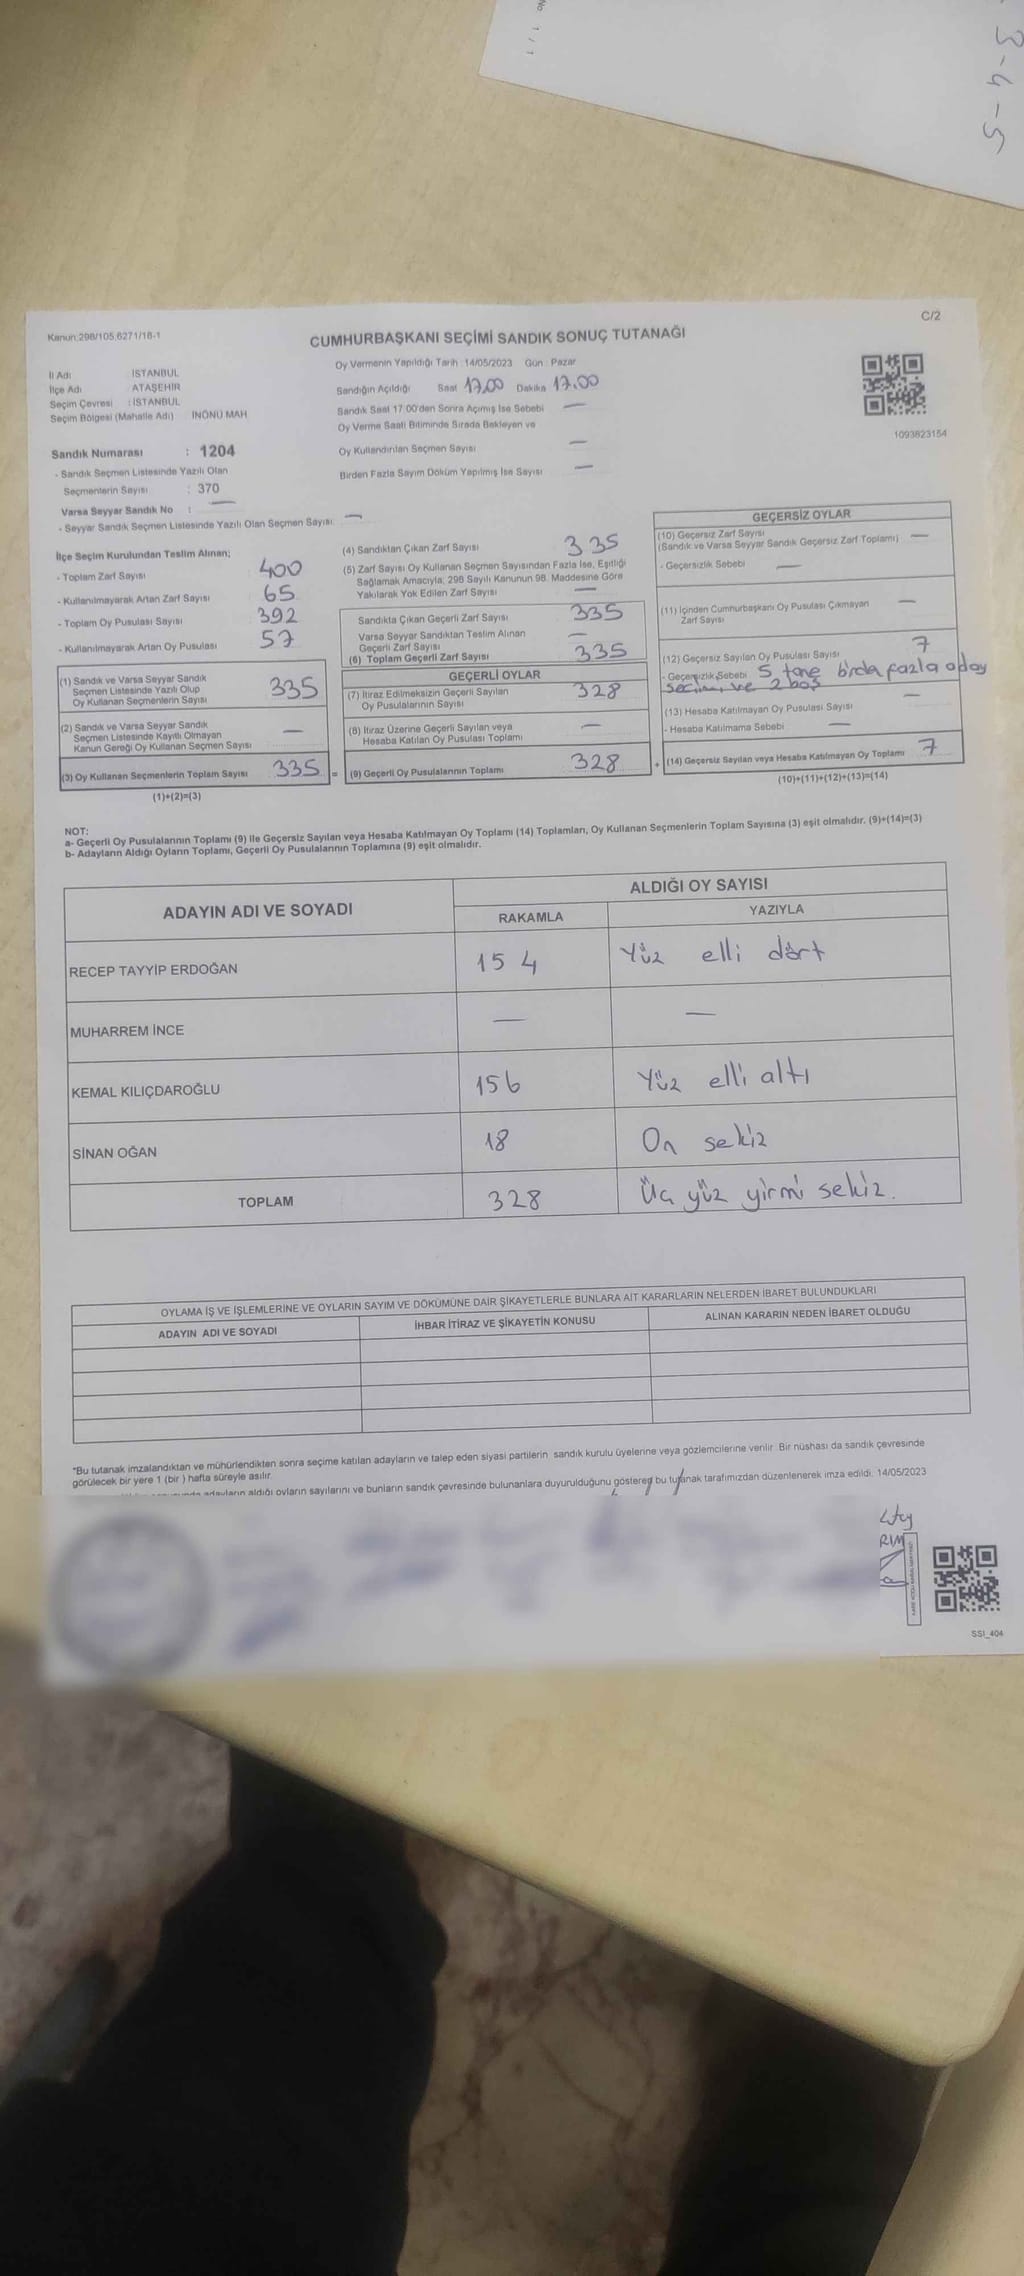 No 1 / 1
3-4-5
Kanun:298/105,6271/18-1
C/2
CUMHURBAŞKANI SEÇİMİ SANDIK SONUÇ TUTANAĞI
İl Adı : İSTANBUL
İlçe Adı : ATAŞEHİR
Seçim Çevresi : İSTANBUL
Seçim Bölgesi (Mahalle Adı) İNÖNÜ MAH
Sandık Numarası : 1204
- Sandık Seçmen Listesinde Yazılı Olan
Seçmenlerin Sayısı : 370
Varsa Seyyar Sandık No : —
- Seyyar Sandık Seçmen Listesinde Yazılı Olan Seçmen Sayısı: —
Oy Vermenin Yapıldığı Tarih :14/05/2023 Gün : Pazar
Sandığın Açıldığı Saat 17.00 Dakika 17.00
Sandık Saat 17:00'den Sonra Açımış İse Sebebi —
Oy Verme Saati Bitiminde Sırada Bekleyen ve
Oy Kullandırılan Seçmen Sayısı —
Birden Fazla Sayım Döküm Yapılmış İse Sayısı —
1093823154
İlçe Seçim Kurulundan Teslim Alınan;
- Toplam Zarf Sayısı 400
- Kullanılmayarak Artan Zarf Sayısı 65
- Toplam Oy Pusulası Sayısı 392
- Kullanılmayarak Artan Oy Pusulası 57
(1) Sandık ve Varsa Seyyar Sandık
Seçmen Listesinde Yazılı Olup
Oy Kullanan Seçmenlerin Sayısı 335
(2) Sandık ve Varsa Seyyar Sandık
Seçmen Listesinde Kayıtlı Olmayan
Kanun Gereği Oy Kullanan Seçmen Sayısı —
(3) Oy Kullanan Seçmenlerin Toplam Sayısı 335 =
(1)+(2)=(3)
(4) Sandıktan Çıkan Zarf Sayısı 335
(5) Zarf Sayısı Oy Kullanan Seçmen Sayısından Fazla İse, Eşitliği
Sağlamak Amacıyla; 298 Sayılı Kanunun 98. Maddesine Göre
Yakılarak Yok Edilen Zarf Sayısı —
Sandıkta Çıkan Geçerli Zarf Sayısı 335
Varsa Seyyar Sandıktan Teslim Alınan
Geçerli Zarf Sayısı —
(6) Toplam Geçerli Zarf Sayısı 335
GEÇERLİ OYLAR
(7) İtiraz Edilmeksizin Geçerli Sayılan
Oy Pusulalarının Sayısı 328
(8) İtiraz Üzerine Geçerli Sayılan veya
Hesaba Katılan Oy Pusulası Toplamı —
(9) Geçerli Oy Pusulalarının Toplamı 328 +
GEÇERSİZ OYLAR
(10) Geçersiz Zarf Sayısı
(Sandık ve Varsa Seyyar Sandık Geçersiz Zarf Toplamı) —
- Geçersizlik Sebebi —
(11) İçinden Cumhurbaşkanı Oy Pusulası Çıkmayan
Zarf Sayısı —
(12) Geçersiz Sayılan Oy Pusulası Sayısı 7
- Geçersizlik Sebebi 5 tane birda fazla aday
seçimi, ve 2 boş
(13) Hesaba Katılmayan Oy Pusulası Sayısı —
- Hesaba Katılmama Sebebi —
(14) Geçersiz Sayılan veya Hesaba Katılmayan Oy Toplamı 7
(10)+(11)+(12)+(13)=(14)
NOT:
a- Geçerli Oy Pusulalarının Toplamı (9) ile Geçersiz Sayılan veya Hesaba Katılmayan Oy Toplamı (14) Toplamları, Oy Kullanan Seçmenlerin Toplam Sayısına (3) eşit olmalıdır. (9)+(14)=(3)
b- Adayların Aldığı Oyların Toplamı, Geçerli Oy Pusulalarının Toplamına (9) eşit olmalıdır.
ADAYIN ADI VE SOYADI
ALDIĞI OY SAYISI
RAKAMLA YAZIYLA
RECEP TAYYİP ERDOĞAN 154 Yüz elli dört
MUHARREM İNCE — —
KEMAL KILIÇDAROĞLU 156 Yüz elli altı
SİNAN OĞAN 18 On sekiz
TOPLAM 328 Üç yüz yirmi sekiz.
OYLAMA İŞ VE İŞLEMLERİNE VE OYLARIN SAYIM VE DÖKÜMÜNE DAİR ŞİKAYETLERLE BUNLARA AİT KARARLARIN NELERDEN İBARET BULUNDUKLARI
ADAYIN ADI VE SOYADI İHBAR İTİRAZ VE ŞİKAYETİN KONUSU ALINAN KARARIN NEDEN İBARET OLDUĞU
"Bu tutanak imzalandıktan ve mühürlendikten sonra seçime katılan adayların ve talep eden siyasi partilerin sandık kurulu üyelerine veya gözlemcilerine verilir. Bir nüshası da sandık çevresinde
görülecek bir yere 1 (bir ) hafta süreyle asılır.
adayların aldığı oyların sayılarını ve bunların sandık çevresinde bulunanlara duyurulduğunu gösteren bu tutanak tarafımızdan düzenlenerek imza edildi. 14/05/2023
RIM
SSI_404